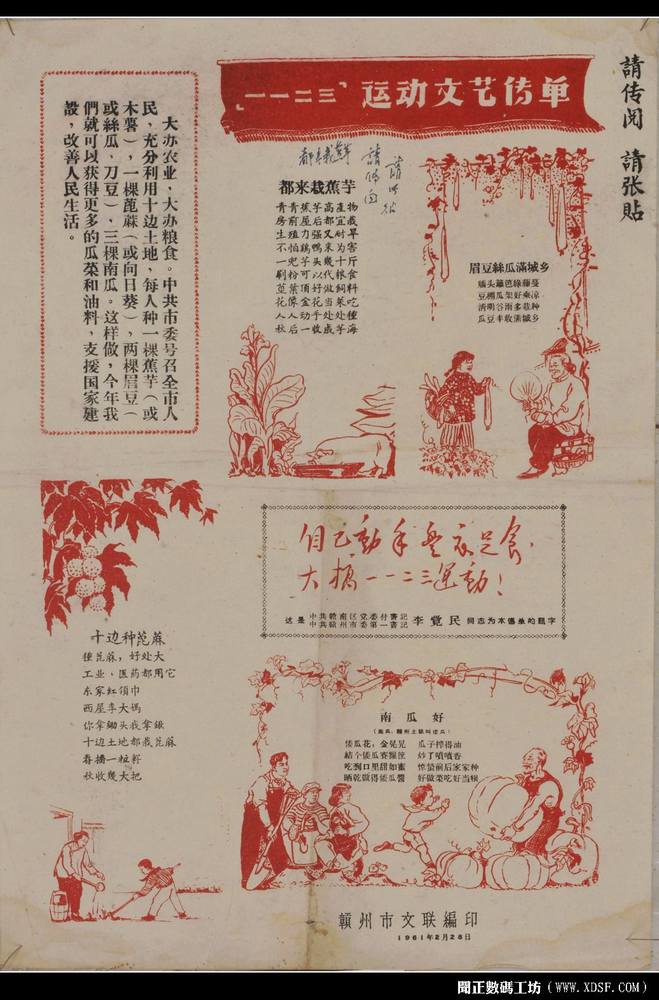 「一一二三」运动文艺传单
請传閱 請张貼
大办农业，大办粮食。中共市委号召全市人
民，充分利用十边土地，每人种一棵蕉芋（或
木薯），一棵蓖蔴（或向日葵），两棵眉豆（
或絲瓜、刀豆），三棵南瓜。这样做，今年我
們就可以获得更多的瓜菜和油料，支援国家建
設，改善人民生活。
都来栽鮮
請傳阅
請张贴
都来栽蕉芋
青青蕉芋高產物
房前屋后都宜栽
生殖力强又耐旱
不怕鸡鴨来为害
一兜芋头几十斤
刷粉可以代粮食
莖葉頂好做飼料
花象金花当菜吃
人人动手处处种
秋后一收成芋海
眉豆絲瓜滿城乡
墙头籬笆綠藤蔓
豆棚瓜架好乘凉
清明谷雨多栽种
瓜豆丰收滿城乡
自己動手豐衣足食。
大搞一一二三運動！
这是 中共赣南区党委付書記 中共赣州市委第一書記 李覚民 同志为本傳单的題字
十边种蓖蔴
種蓖蔴，好处大
工业，医药都用它
东家紅領巾
西屋李大媽
你拿鋤头我拿鍬
十边土地都栽蓖蔴
春播一粒籽
秋收幾大把
南瓜好
（南瓜，贛州土話叫倭瓜）
倭瓜花，金晃晃
結个倭瓜赛籮筐
吃到口里甜如蜜
晒乾做得倭瓜醬
瓜子榨得油
炒了噴噴香
惊蟄前后家家种
好做菜吃好当粮
贛州市文联編印
1961年2月28日
閒正數碼工坊（WWW.XDSF.COM）